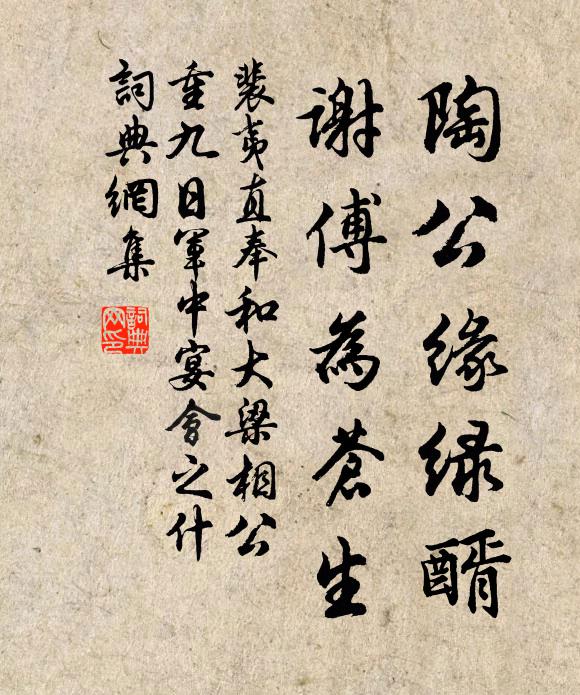 陶公緣綠醑
謝傅為蒼生
裴夷直奉和大梁相公
重九日軍中宴會之什
詞典網集
詞典
网印